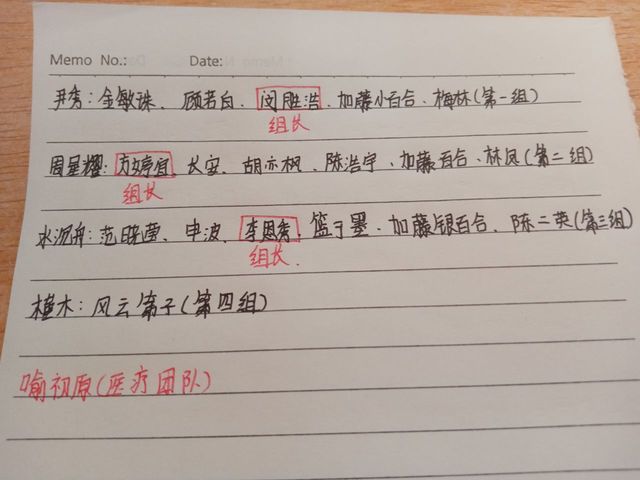 Memo No.: Date:
尹秀:金敏珠、顾若白、闵胜浩、加藤小百合、梅林(第一组)
组长
周星耀:方婷宜、长安、胡亦枫、陈浩宇、加藤百合、林凤(第二组)
组长
水沉舟:范晓莹、申波、李恩秀、筮于墨、加藤银百合、陈二英(第三组)
组长.
橦木:风云弟子(第四组)
喻初原(医疗团队)